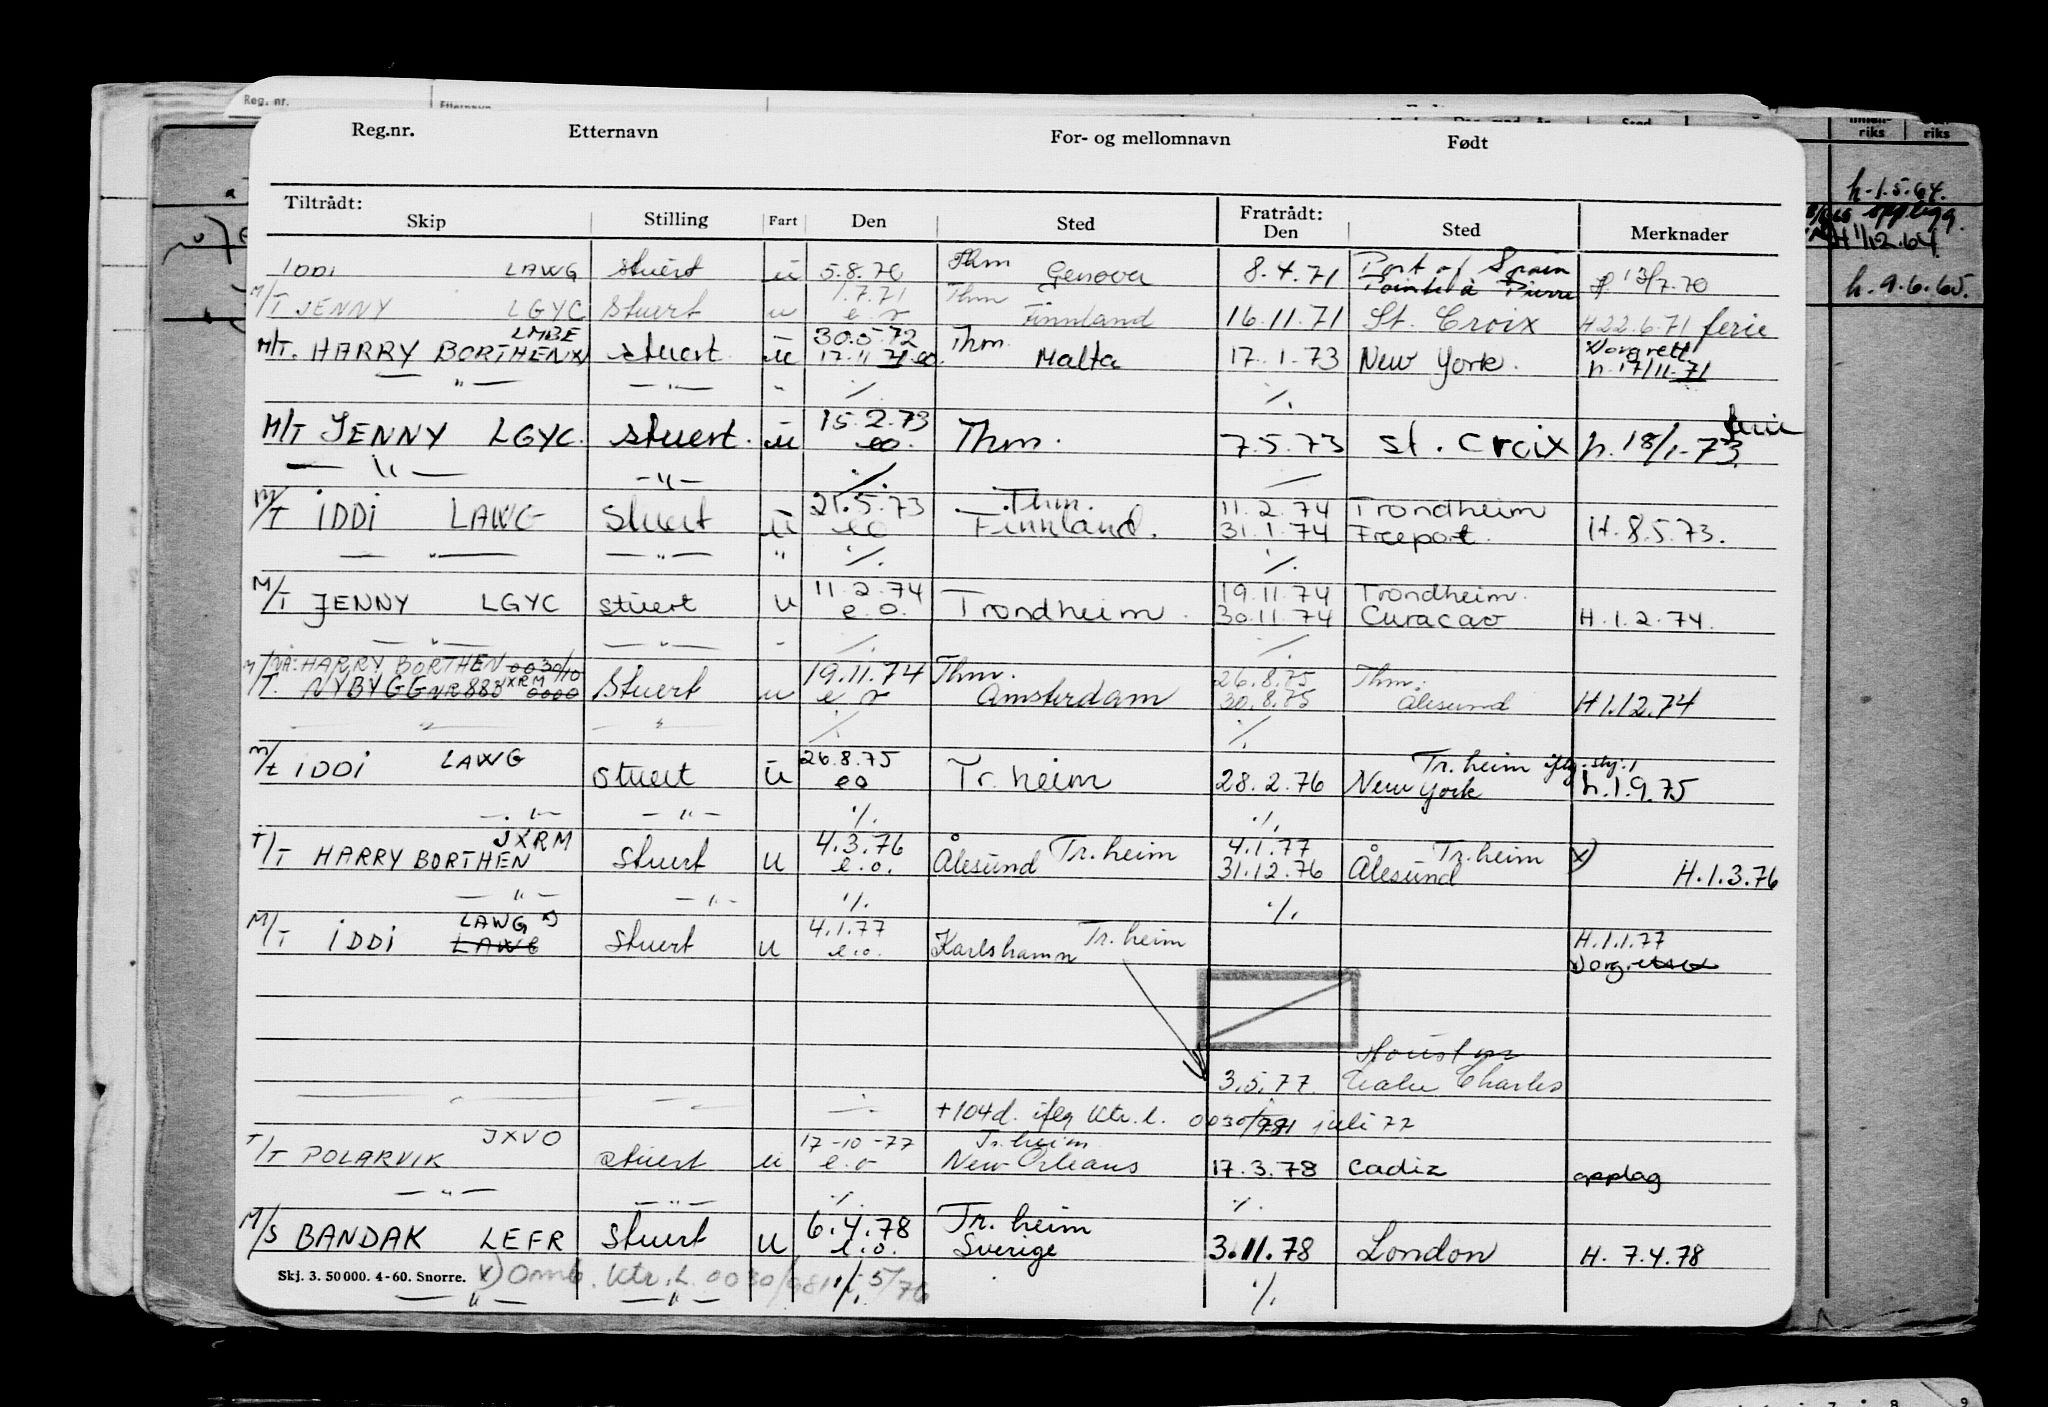 Reg.nr. Etternavn For- og mellomnavn Født
Tiltrådt: Fratrådt:
Skip Stilling Fart Den Sted Den Sted Merknader
IDDI LAWG stuert u 5.8.70 Thm Genova 8.4.71 Port of Spain 13/7.70
Pointe à Pierre
M/T JENNY LGYC Stuert u 1.7.71 Thm Finnland 16.11.71 St. Croix H 22.6.71 ferie
LMBE 30.5.72 Thm.
M/T. HARRY BORTHEN x) stuert. u 17.11 71 eo. Malta 17.1.73 New York. h. 17/11-71
— " — — " — " ./. ./.
M/T JENNY LGYC. stuert. u 15.2.73 eo. Thm. 7.5.73 St. Croix h. 18/1-73 ferie
— " — — " — ./. —
M/T IDDI LAWG Stuert u 21.5.73 Thm. 11.2.74 Trondheim
eo Finnland. 31.1.74 Freeport. H. 8.5.73.
— " — — " — " ./. ./.
M/T JENNY LGYC stuert u 11.2.74 Trondheim. 19.11.74 Trondheim.
e.o. 30.11.74 Curacao H. 1.2.74.
— " — — " — " ./. ./.
NÅ: HARRY BORTHEN 0030/10
M/T. NYBYGG NR 883 JXRM 0000 Stuert u 19.11.74 Thm. 26.8.75 Thm.
e o Amsterdam 30.8.75 Ålesund H 1.12.74
— " — " ./. ./.
M/T IDDI LAWG stuert u 26.8.75 Tr.heim Tr.heim iflg. stj. 1
eo 28.2.76 New York h. 1.9.75
— " — — " — ./. ./.
T/T HARRY BORTHEN JXRM Stuert u 4.3.76 Tr.heim 4.1.77 Tr.heim x)
e.o. Ålesund 31.12.76 Ålesund H. 1.3.76
— " — — " — ./. ./.
M/T IDDI LAWG x) LAWG Stuert u 4.1.77 Tr.heim H. 1.1.77
e.o. Karlshamn
Houston
3.5.77 Charles
— " — — " — ./. +104 d. iflg Ktr. l. 0030/981 juli 77
T/T POLARVIK JXVO stuert u 17-10-77 Tr.heim
e.o New Orleans 17.3.78 Cadiz opplag
— " — — " — ./. ./.
M/S BANDAK LEFR Stuert u 6.4.78 Tr.heim
e.o. Sverige 3.11.78 London H. 7.4.78
Skj. 3. 50 000. 4-60. Snorre. x) Omb. Ktr. L. 0030/981 5/76
— " — — " — ./. ./.
Reg. nr. Etternavn
riks riks
h. 1.5.64.
opplegg.
H 1/12.64
h. 9.6.65.